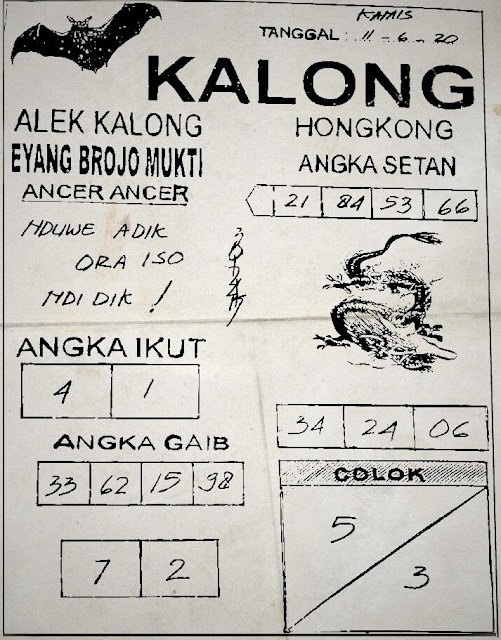 KAMIS
TANGGAL : 11 - 6 - 20
KALONG
ALEK KALONG
EYANG BROJO MUKTI
ANCER ANCER
NDUWE ADIK
ORA ISO
NDIDIK !
HONGKONG
ANGKA SETAN
21 84 53 66
ANGKA IKUT
4 1
34 24 06
ANGKA GAIB
33 62 15 98
7 2
COLOK
5
3